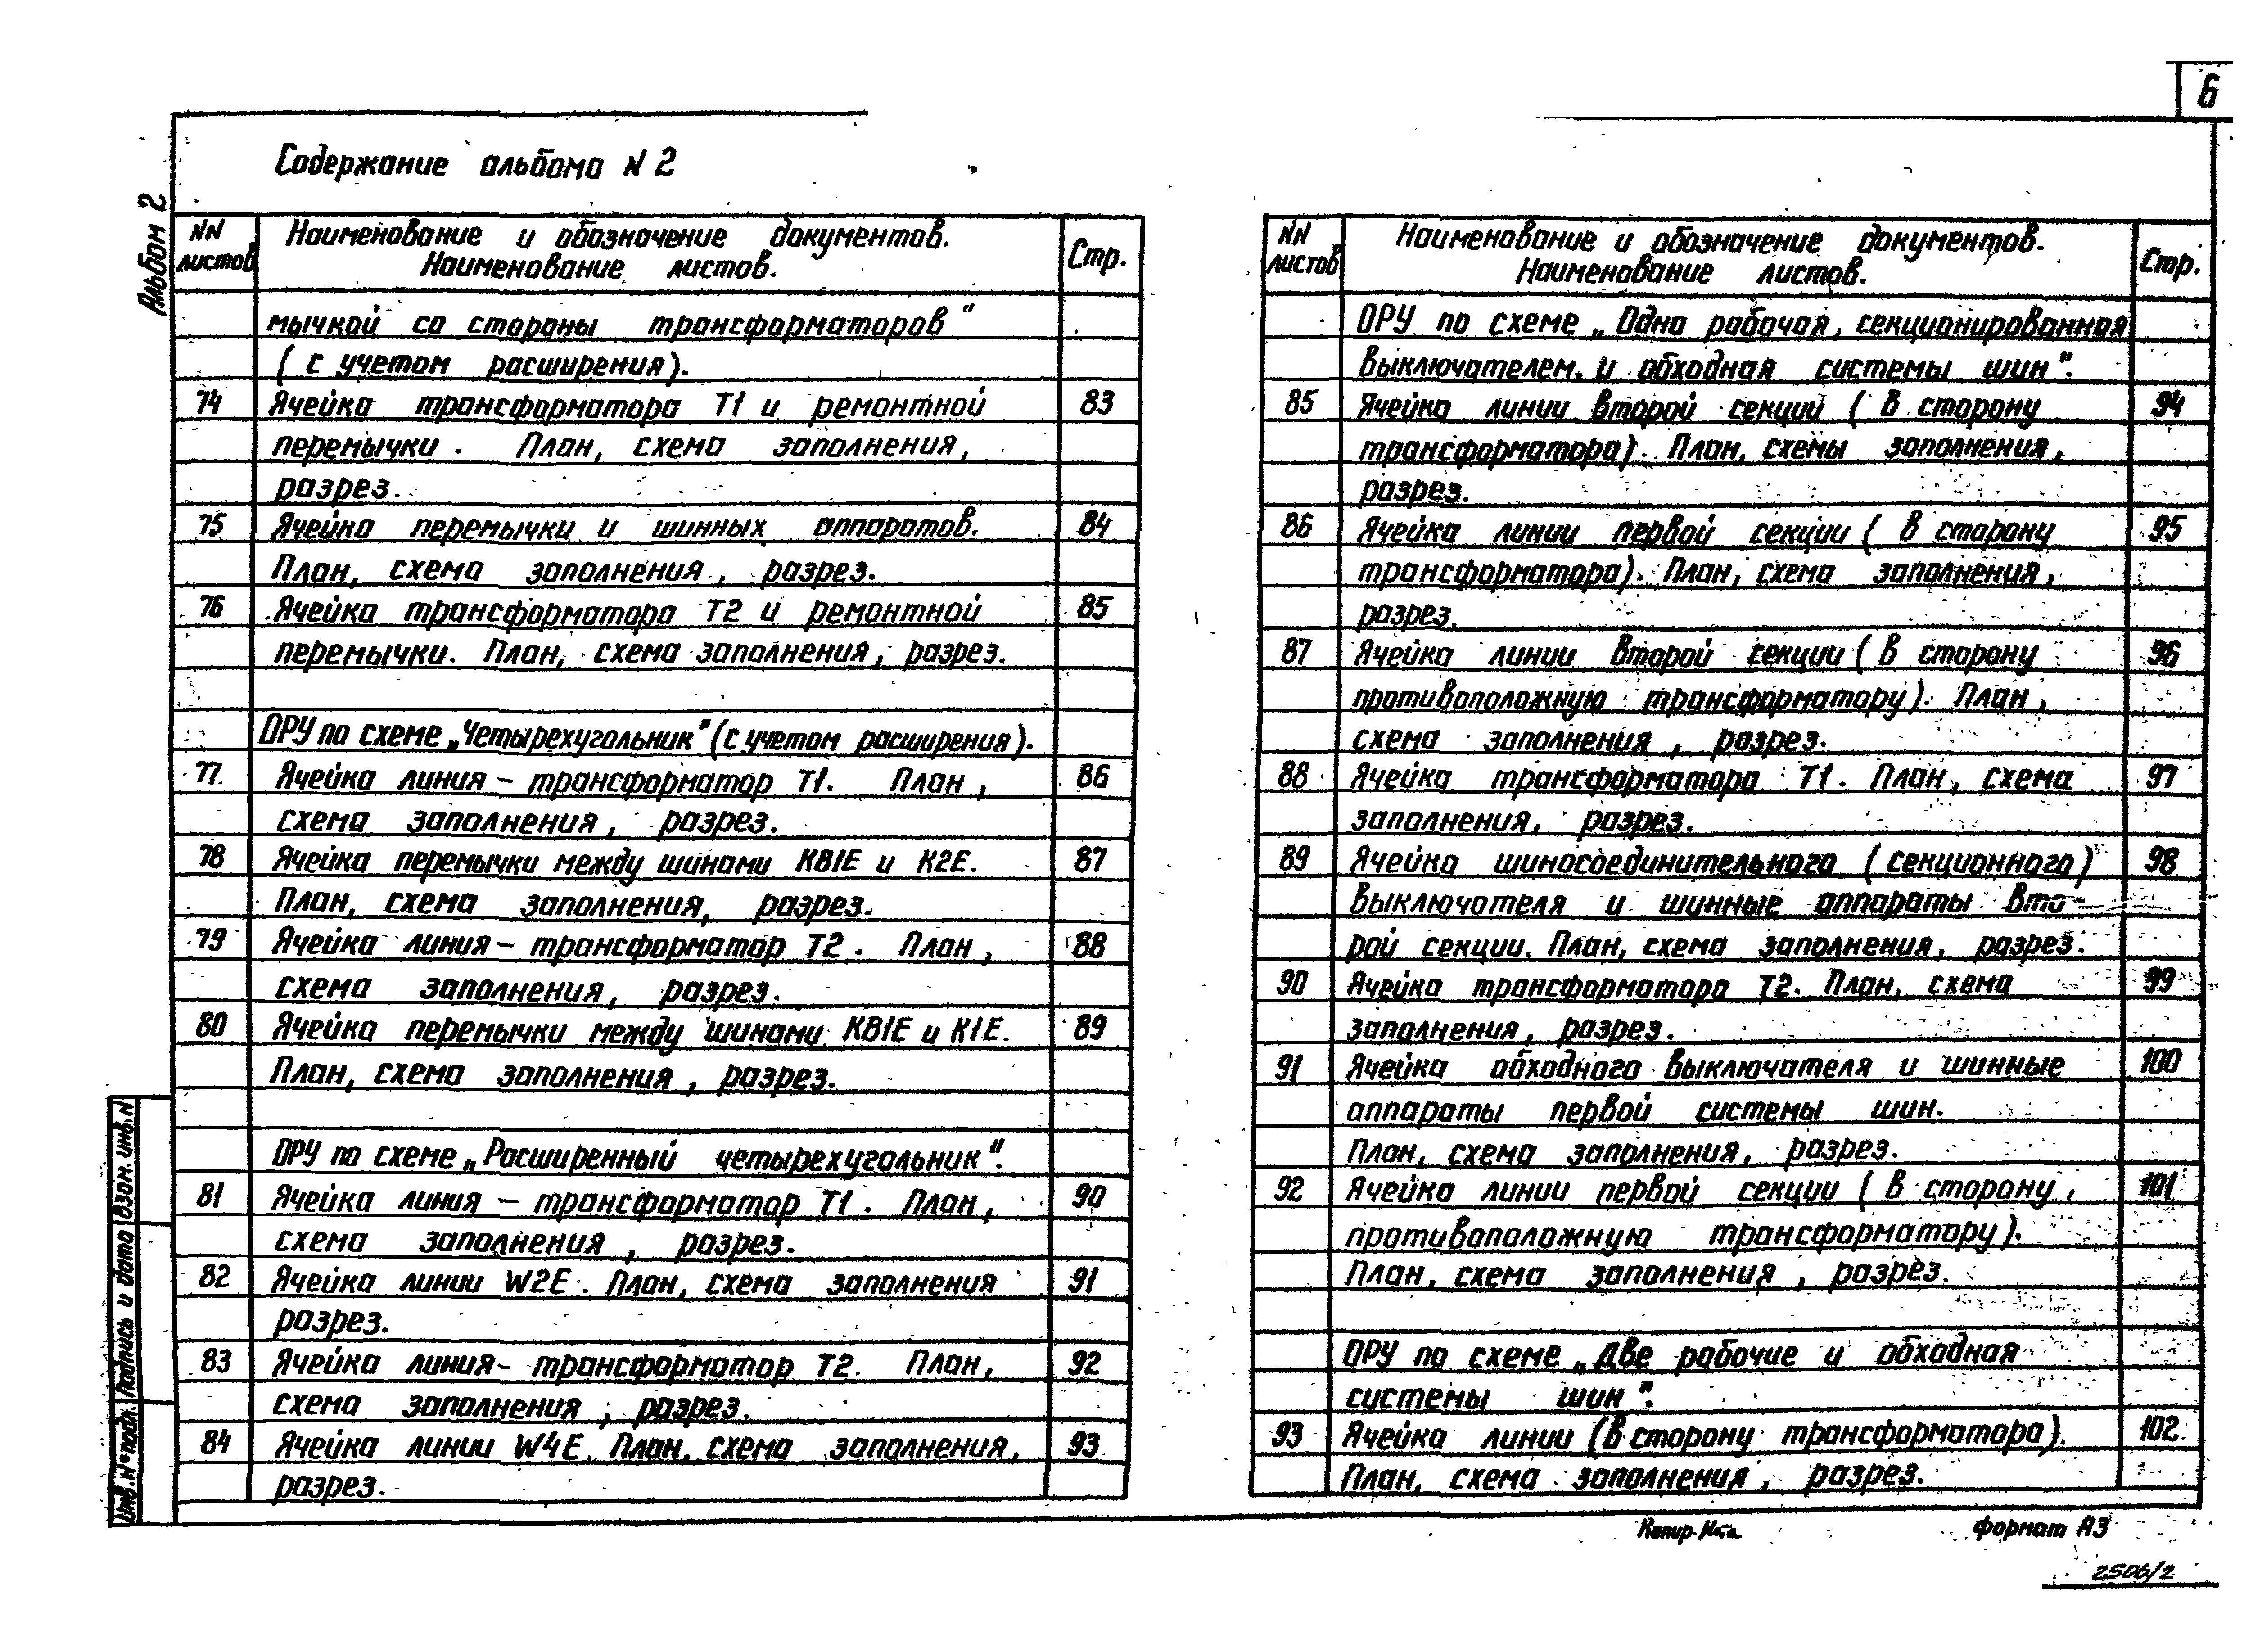 6
Содержание альбома N 2
Альбом 2
NN листов
Наименование и обозначение документов.
Наименование листов.
Стр.
мычкой со стороны трансформаторов"
(с учетом расширения).
74 Ячейка трансформатора Т1 и ремонтной 83
перемычки. План, схема заполнения,
разрез.
75 Ячейка перемычки и шинных аппаратов. 84
План, схема заполнения, разрез.
76 Ячейка трансформатора Т2 и ремонтной 85
перемычки. План, схема заполнения, разрез.
ОРУ по схеме „Четырехугольник" (с учетом расширения).
77 Ячейка линия – трансформатор Т1. План, 86
схема заполнения, разрез.
78 Ячейка перемычки между шинами КВ1Е и К2Е. 87
План, схема заполнения, разрез.
79 Ячейка линия – трансформатор Т2. План, 88
схема заполнения, разрез.
80 Ячейка перемычки между шинами КВ1Е и К1Е. 89
План, схема заполнения, разрез.
ОРУ по схеме „Расширенный четырехугольник".
81 Ячейка линия – трансформатор Т1. План, 90
схема заполнения, разрез.
82 Ячейка линии W2E. План, схема заполнения 91
разрез.
83 Ячейка линия – трансформатор Т2. План, 92
схема заполнения, разрез.
84 Ячейка линии W4E. План, схема заполнения, 93
разрез.
NN листов
Наименование и обозначение документов.
Наименование листов.
Стр.
ОРУ по схеме „Одна рабочая, секционированная
выключателем, и обходная системы шин".
85 Ячейка линии второй секции (в сторону 94
трансформатора). План, схемы заполнения,
разрез.
86 Ячейка линии первой секции (в сторону 95
трансформатора). План, схема заполнения,
разрез.
87 Ячейка линии второй секции (в сторону 96
противоположную трансформатору). План,
схема заполнения, разрез.
88 Ячейка трансформатора Т1. План, схема 97
заполнения, разрез.
89 Ячейка шиносоединительного (секционного) 98
выключателя и шинные аппараты вто-
рой секции. План, схема заполнения, разрез.
90 Ячейка трансформатора Т2. План, схема 99
заполнения, разрез.
91 Ячейка обходного выключателя и шинные 100
аппараты первой системы шин.
План, схема заполнения, разрез.
92 Ячейка линии первой секции (в сторону, 101
противоположную трансформатору).
План, схема заполнения, разрез.
ОРУ по схеме „Две рабочие и обходная
системы шин".
93 Ячейка линии (в сторону трансформатора). 102
План, схема заполнения, разрез.
Инв. № подл. Подпись и дата Взам. инв. N
Копир.
формат А3
2506/2